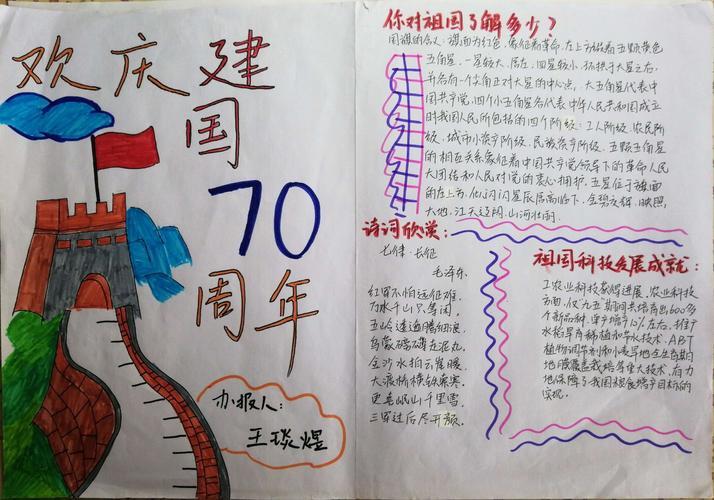 欢庆建
国
70
周年
办报人：
王琰煜
你对祖国了解多少？
国旗的含义：旗面为红色，象征着革命，左上方缀着五颗黄色
五角星，一星较大，居左，四星较小，环拱于大星之右，
并各有一个尖角正对大星的中心点，大五角星代表中
国共产党，四个小五角星各代表中华人民共和国成立
时我国人民所包括的四个阶级：工人阶级、农民阶
级、城市小资产阶级、民族资产阶级，五颗五角星
的相互关系象征着中国共产党领导下的革命人民
大团结和人民对党的衷心拥护，五星位于旗面
的左上方，似闪闪星辰居高临下，金碧交辉，映照
大地，江天辽阔，山河壮丽。
诗词欣赏：
七律·长征
毛泽东
红军不怕远征难，
万水千山只等闲。
五岭逶迤腾细浪，
乌蒙磅礴走泥丸。
金沙水拍云崖暖，
大渡桥横铁索寒。
更喜岷山千里雪，
三军过后尽开颜。
祖国科技发展成就：
工农业科技蒙得进展，农业科技
方面，仅九五期间共培育出600多
个新品种，单产增产12%左右，推广
水稻旱育稀植和节水技术，ABT
植物调节剂和小麦旱地全生育期
地膜覆盖栽培等重大技术，有力
地保障了我国粮食增产目标的
实现。